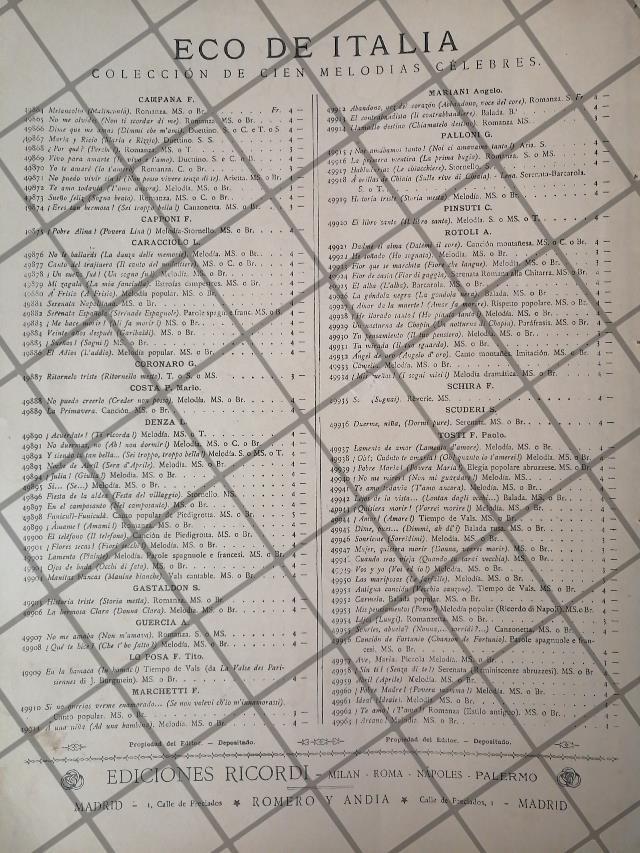 ECO DE ITALIA
COLECCIÓN DE CIEN MELODIAS CÉLEBRES.
CAMPANA F.
49864 Melancolía (Malinconia). Romanza. MS. o Br. Fr. 4 —
49865 No me olvides (Non ti scordar di me). Romanza. MS. o Br.
49866 Dime que me amas (Dimmi che m'ami). Duettino. S. o C. e T. o S. 4 —
49867 María y Rizio (Maria e Rizzio). Duettino. S. S.
49868 ¿Por qué? (Perchè). Romanza. MS. o T.
49869 Vivo para amarte (Io vivo e t'amo). Duettino. S. e C. o B.
49870 Yo te amaré (Io t'amerò). Romanza. C. o Br.
49871 No puedo vivir sin tí (Non posso vivere senza di te). Arietta. MS. o Br.
49872 Te amo todavía (T'amo ancora). Melodía. MS.
49873 Sueño feliz (Sogno beato). Romanza. C. o Br.
49874 ¡Eres tan hermosa! (Sei troppo bella!) Canzonetta. MS. o Br.
CAPPONI F.
49875 ¡Pobre Alina! (Povera Lina!) Melodía-Stornello. MS. o Br.
CARACCIOLO L.
49876 No le bailards (La danza delle memorie). Melodía. MS. o T.
49877 Canto del trajinero (Il canto del mulattiere). MS. o C. o Br.
49878 ¡Un sueño fué! (Un sogno fu!) Melodía. MS.
49879 Mi zagala (La mia fanciulla). Estrofas campestres. MS. o Br.
49880 A Frisia (A Frisia). Melodía popular. MS. o Br.
49881 Serenata Napolitana. MS. o Br.
49882 Serenata Española (Sérénade Espagnole). Parole spagn. e franc. MS. o B.
49883 ¡Me hace morir! (Mi fa morir!) MS. o Br.
49884 Veinte años después (Garibaldi). MS. o Br.
49885 ¡Sueños! (Sogni!) MS. o Br.
49886 El Adios (L'addio). Melodía popular. MS. o Br.
CORONARO G.
49887 Ritornelo triste (Ritornello mesto). T. o S. o MS. 3 —
COSTA P. Mario.
49888 No puedo creerlo (Creder non posso). Melodía. MS. o Br.
49889 La Primavera. Canción. MS. o Br.
DENZA L.
49890 ¡Acuérdate! (Ti ricorda!) Melodía. MS. o T.
49891 No duermas, no (Ah! non dormir!) Melodía. MS. o C. o Br.
49892 Y siendo tú tan bella... (Sei troppo, troppo bella!) Melodía. S. o MS. o T.
49893 Noche de Abril (Sera d'Aprile). MS. o Br.
49894 ¡Julia! (Giulia!) MS. o Br.
49895 Si... (Se...) Melodía. MS. o Br.
49896 Fiesta de la aldea (Festa del villaggio). Stornello. MS.
49897 En el camposanto (Nel camposanto). MS. o Br.
49898 Funiculì-Funiculà. Canto popular de Piedigrotta. MS. o Br.
49899 ¡Ámame! (Amami!) Romanza. MS. o Br.
49900 El teléfono (Il telefono). Canción de Piedigrotta. MS. o Br.
49901 ¡Flores secas! (Fiori secchi!) Melodía. MS. o Br.
49902 Lamento (Plainte). Melodía. Parole spagnole e francesi. MS. o Br.
49903 Ojos de hada (Occhi di fata). MS. o Br.
49904 Manitas blancas (Manine bianche). Vals cantable. MS. o Br.
GASTALDON S.
49905 Historia triste (Storia mesta). Romanza. MS. o Br.
49906 La hermosa Clara (Donna Clara). Melodía. MS. o Br.
GUERCIA A.
49907 No me amaba (Non m'amava). Romanza. S. o MS.
49908 ¡Qué te hice! (Che t'ho fatto!) Melodía. MS. o Br.
LO POSA F. Tito.
49909 En la hamaca (In hamac!) Tiempo de Vals (da La Valse des Parisiennes
di J. Burgmein). MS. o Br.
MARCHETTI F.
49910 Si no querías verme enamorado... (Se non volevi ch'io m'innamorassi).
Canto popular. MS. o Br.
49911 A una niña (Ad una bambina). Melodía. MS. o Br.
MARIANI Angelo.
49912 Abandono, voz del corazón (Abbandono, voce del core). Romanza. S. Fr.
49913 El contrabandista (Il contrabbandiere). Balada. B.
49914 Llámalle destino (Chiamatelo destino). Romanza. MS.
PALLONI G.
49915 ¡Nos amábamos tanto! (Noi ci amavamo tanto!) Aria. S.
49916 La primera mentira (La prima bugia). Romanza. S. o MS.
49917 Habladurías (Le chiacchiere). Stornello. S.
49918 Á orillas de Chiaia (Sulle rive di Chiaia). - Lena. Serenata-Barcarola.
S. o T.
49919 Historia triste (Storia mesta). Melodía. MS. o Br.
PINSUTI C.
49920 El libro santo (Il libro santo). Melodía. S. o MS. o T.
ROTOLI A.
49921 Dadme el alma (Datemi il core). Canción montañesa. MS. o C. o Br.
49922 He soñado (Ho sognato). Melodía. MS. o Br.
49923 Flor que se marchita (Fiore che langue). Melodía. MS. o Br.
49924 Flor de casia (Fior di gaggia). Serenata Romana alla Chitarra. MS. o Br.
49925 El alba (L'alba). Barcarola. MS. o Br.
49926 La góndola negra (La gondola nera). Balada. MS. o Br.
49927 ¡Amor da la muerte! (Amor fa morire). Rispetto popolare. MS. o Br.
49928 ¡He llorado tanto! (Ho pianto tanto!) Melodía. MS. o Br.
49929 Un nocturno de Chopin (Un notturno di Chopin). Paráfrasis. MS. o Br.
49930 Tu pensamiento (Il tuo pensiero). Melodía. MS. o Br.
49931 Tu mirada (Il tuo sguardo). MS. o Br.
49932 Ángel de oro (Angelo d'oro). Canto montañés. Imitación. MS. o Br.
49933 Camelia. Melodía. MS. o Br.
49934 ¡Mis sueños! (I sogni miei!) Melodía dramática. MS. o Br.
SCHIRA F.
49935 S. (Sognai). Rêverie. MS.
SCUDERI S.
49936 Duerme, niña, (Dormi pure). Serenata. MS. o Br.
TOSTI F. Paolo.
49937 Lamento de amor (Lamento d'amore). Melodía. MS. o Br.
49938 ¡Oh! ¡Cuánto te amaría! (Oh! quanto io t'amerei!) Melodía. MS. o Br.
49939 ¡Pobre María! (Povera Maria!) Elegía popolare abruzzese. MS. o Br.
49940 ¡No me mires! (Non mi guardare!) Melodía. MS.
49941 Te amo todavía (T'amo ancora). Melodía. MS. o Br.
49942 Lejos de la vista... (Lontan dagli occhi...) Balada. MS. o Br.
49943 ¡Quisiera morir! (Vorrei morire!) Melodía. MS. o Br.
49944 ¡Amor! (Amore!) Tiempo de Vals. MS. o Br.
49945 Dime, pues... (Dimmi, di dì!) Balada rusa. MS. o Br.
49946 Sonríeme (Sorridimi). Melodía. MS. o Br.
49947 Mujer, quisiera morir (Donna, vorrei morir). Melodía. MS. o Br.
49948 Cuando seas vieja (Quando tu sarai vecchia). Melodía. MS. o Br.
49949 Vos y yo (Voi ed io!) Melodía. MS. o Br.
49950 Las mariposas (Le farfalle). Melodía. MS. o Br.
49951 Antigua canción (Vecchia canzone). Tiempo de Vals. MS. o Br.
49952 Carmela. Balada popular. MS. o Br.
49953 Mis pensamientos (Penso!) Melodía popular (Ricordo di Napoli). MS. o Br.
49954 Léjos (Lungi). Romanza. MS. o Br.
49955 Sonríes, abuela? (Nonna,... sorridi?...) Canzonetta. MS. o Br.
49956 Canción de Fortunio (Chanson de Fortunio). Parole spagnuole e francesi.
MS. o Br.
49957 Ave, María. Piccola Melodía. MS. o Br.
49958 Sin tí! (Senza di te!) Serenata (Reminiscenze abruzzesi). MS. o Br.
49959 Abril (Aprile). Melodía. MS. o Br.
49960 ¡Pobre Madre! (Povera mamma!) Melodía. MS. o Br.
49961 Ideal (Ideale). Melodía. MS. o Br.
49962 ¡Te amo! (T'amo!) Romanza (Estilo antiguo). MS. o Br.
49963 ¡Arcano! Melodía. MS. o Br.
Propiedad del Editor. - Depositado.
Propiedad del Editor. - Depositado.
EDICIONES RICORDI - MILAN - ROMA - NÁPOLES - PALERMO
MADRID - 1, Calle de Preciados ★ ROMERO Y ANDIA ★ Calle de Preciados, 1 - MADRID